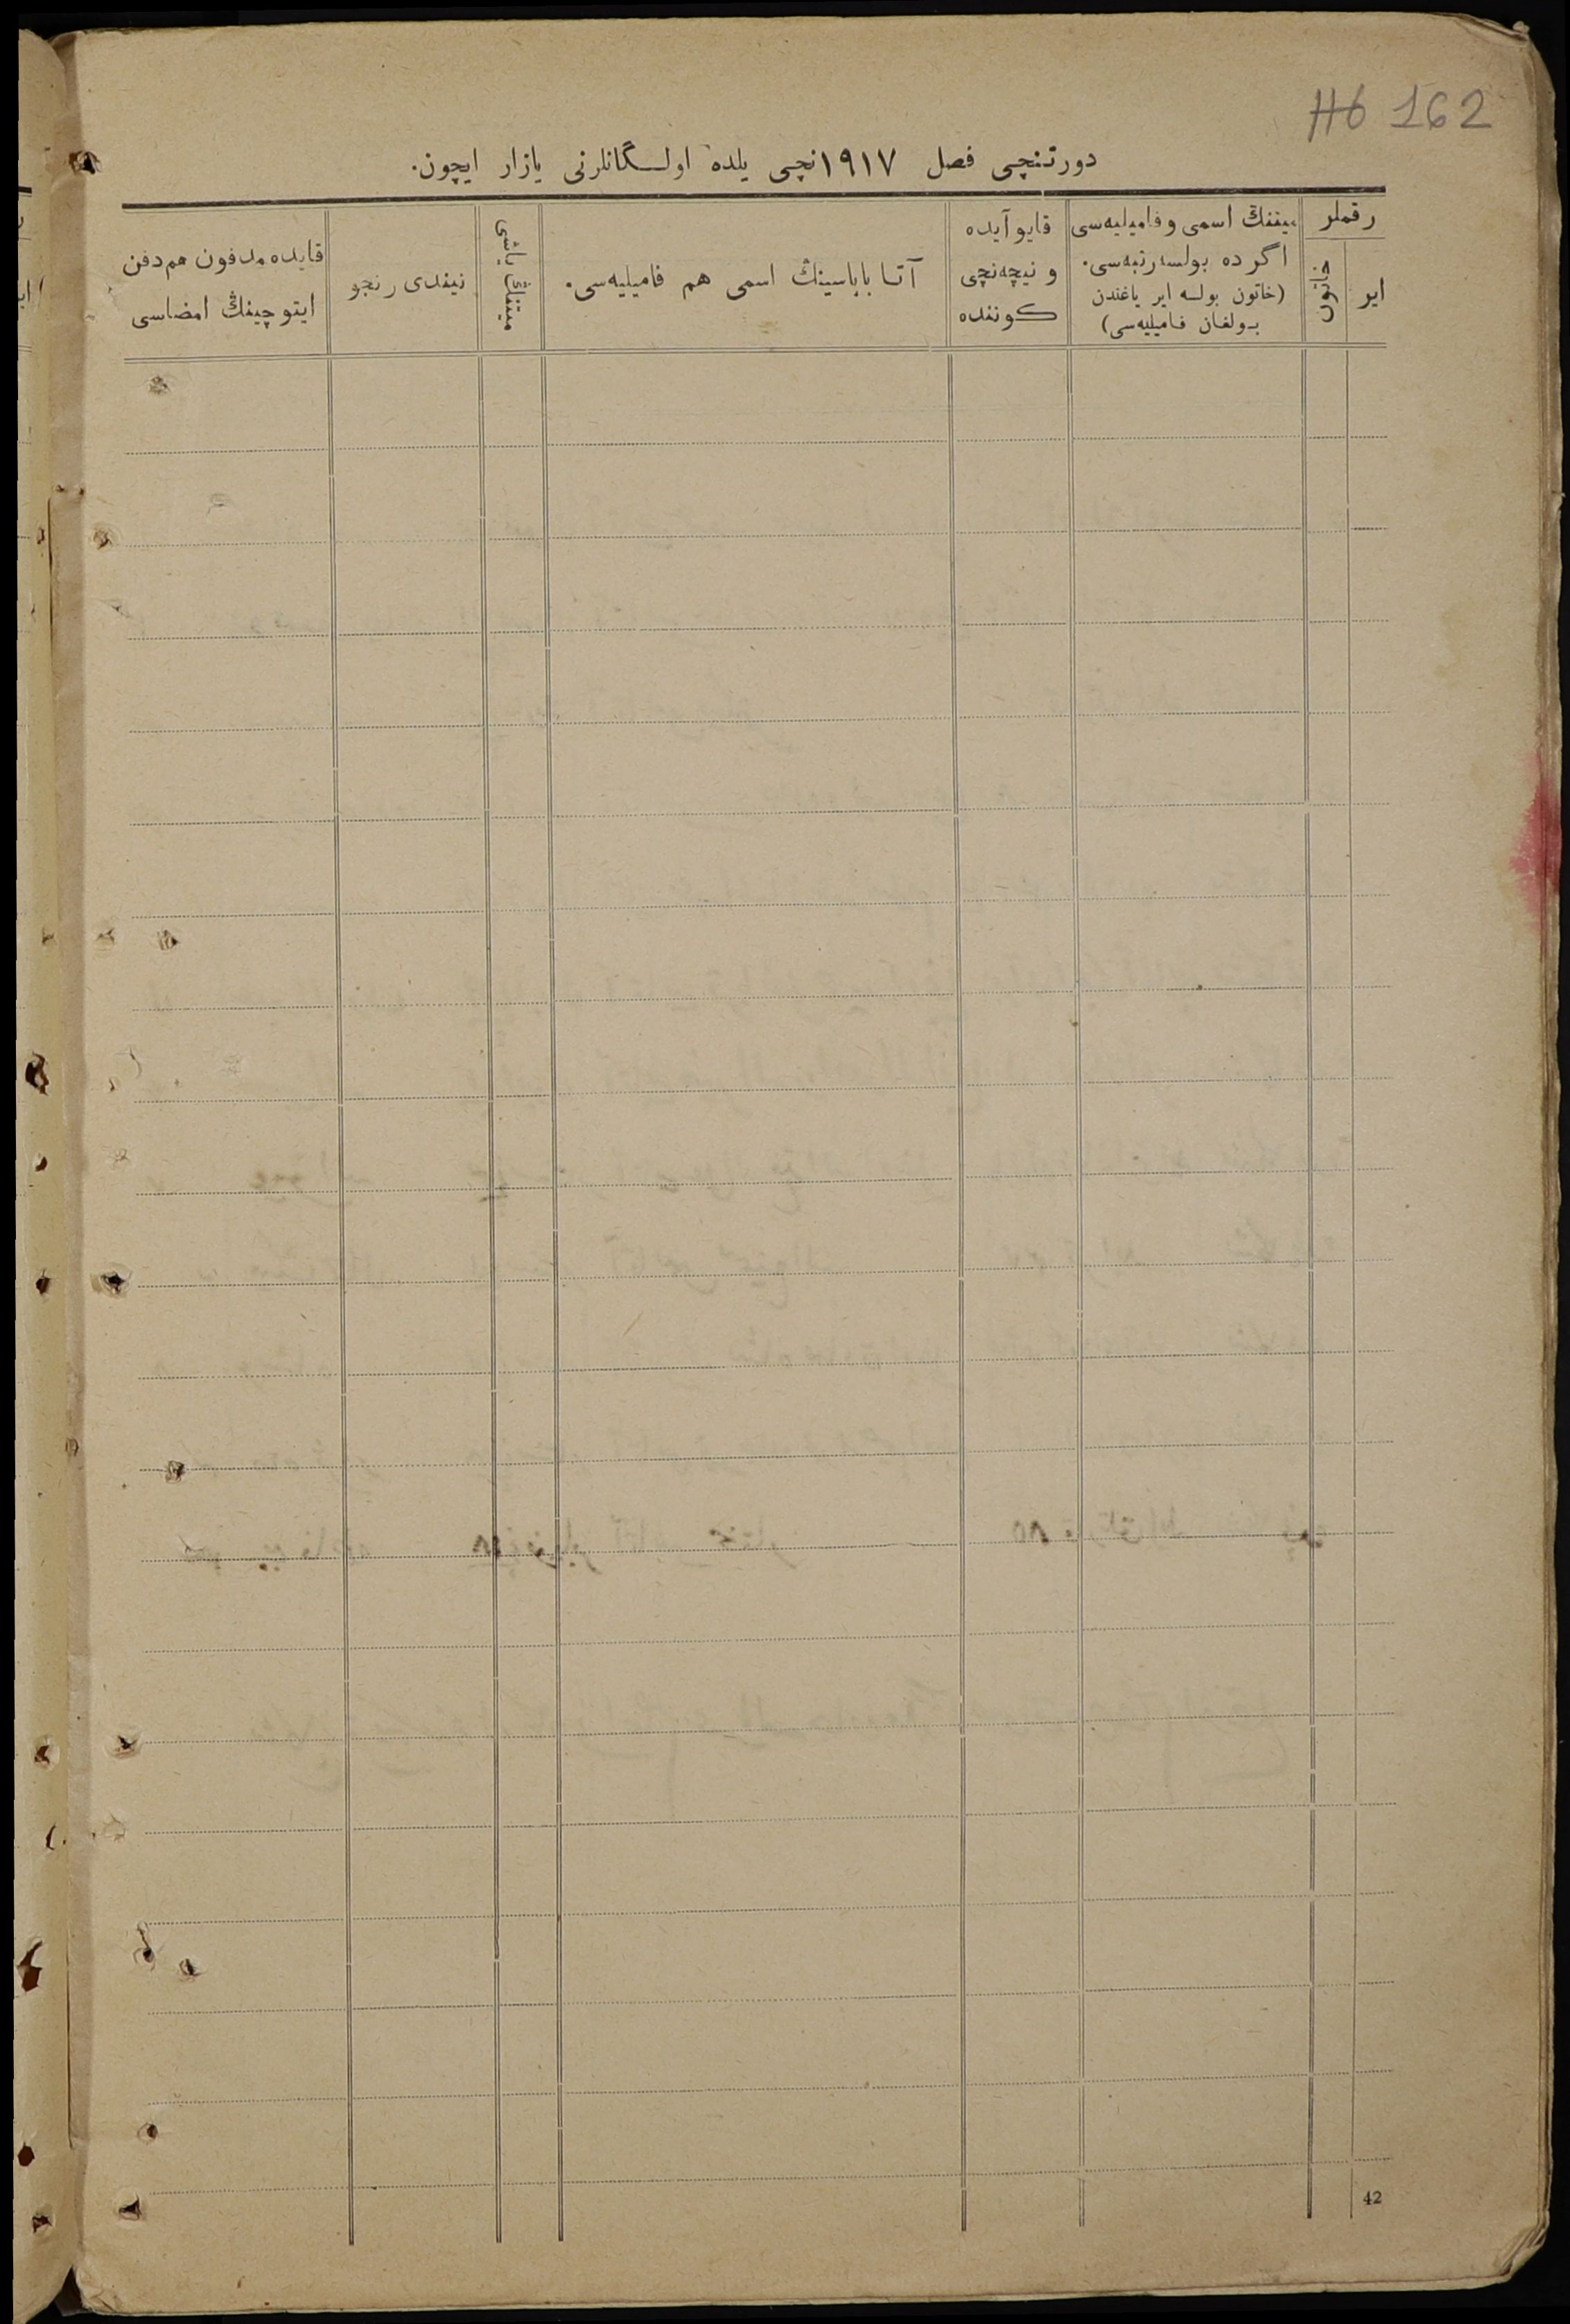 116 162
دورتنچی فصل ۱۹۱۷نچی یلده اولـگانلرنی یازار ایچون.
رقملر
ایر
خاتون
میتنڭ اسمی و فامیلیه‌سی
اگر ده بولسه رتبه‌سی.
(خاتون بولسه ایر یاغندن
بولغان فامیلیه‌سی)
قایو آیده
و نیچه‌نچی
کوننده
آتا باباسینڭ اسمی هم فامیلییه‌سی.
میتنڭ یاشی
نیندی رنجو
قایده مدفون هم دفن
ایتوچینڭ امضاسی
42